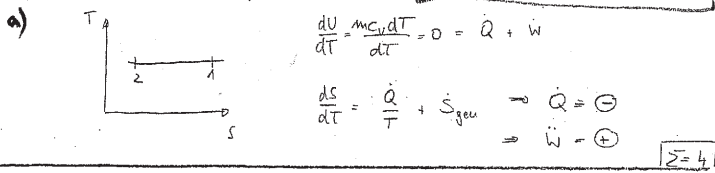 a)
T
2 1
S
dU/dT = mc_v dT/dT = 0 = Q̇ + Ẇ
dS/dT = Q̇/T + Ṡ_gen ⇒ Q̇ = ⊖
⇒ Ẅ = ⊕
Σ = 4